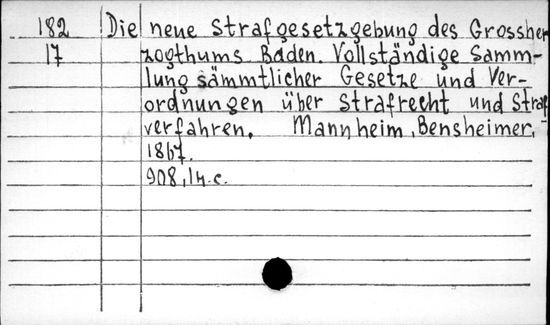 182 Die neue Strafgesetzgebung des Grossher
17 zogthums Baden. Vollständige Samm-
lung sämmtlicher Gesetze und Ver-
ordnungen über Strafrecht und Straf
verfahren. Mannheim, Bensheimer,
1867.
908, In.c.